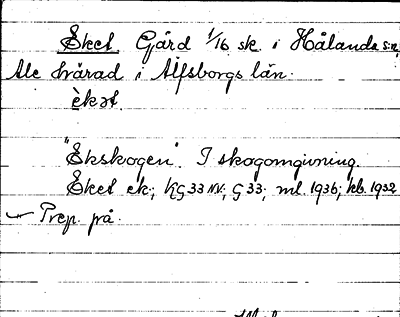 Eket Gård 1/16 sk. i Hålanda s:n,
Ale härad i Älfsborgs län.
èkət.
"Ekskogen". I skogomgivning.
Eket ek.; KG 33 NV.; G 33; ml. 1936; kb. 1932
Prep. på.